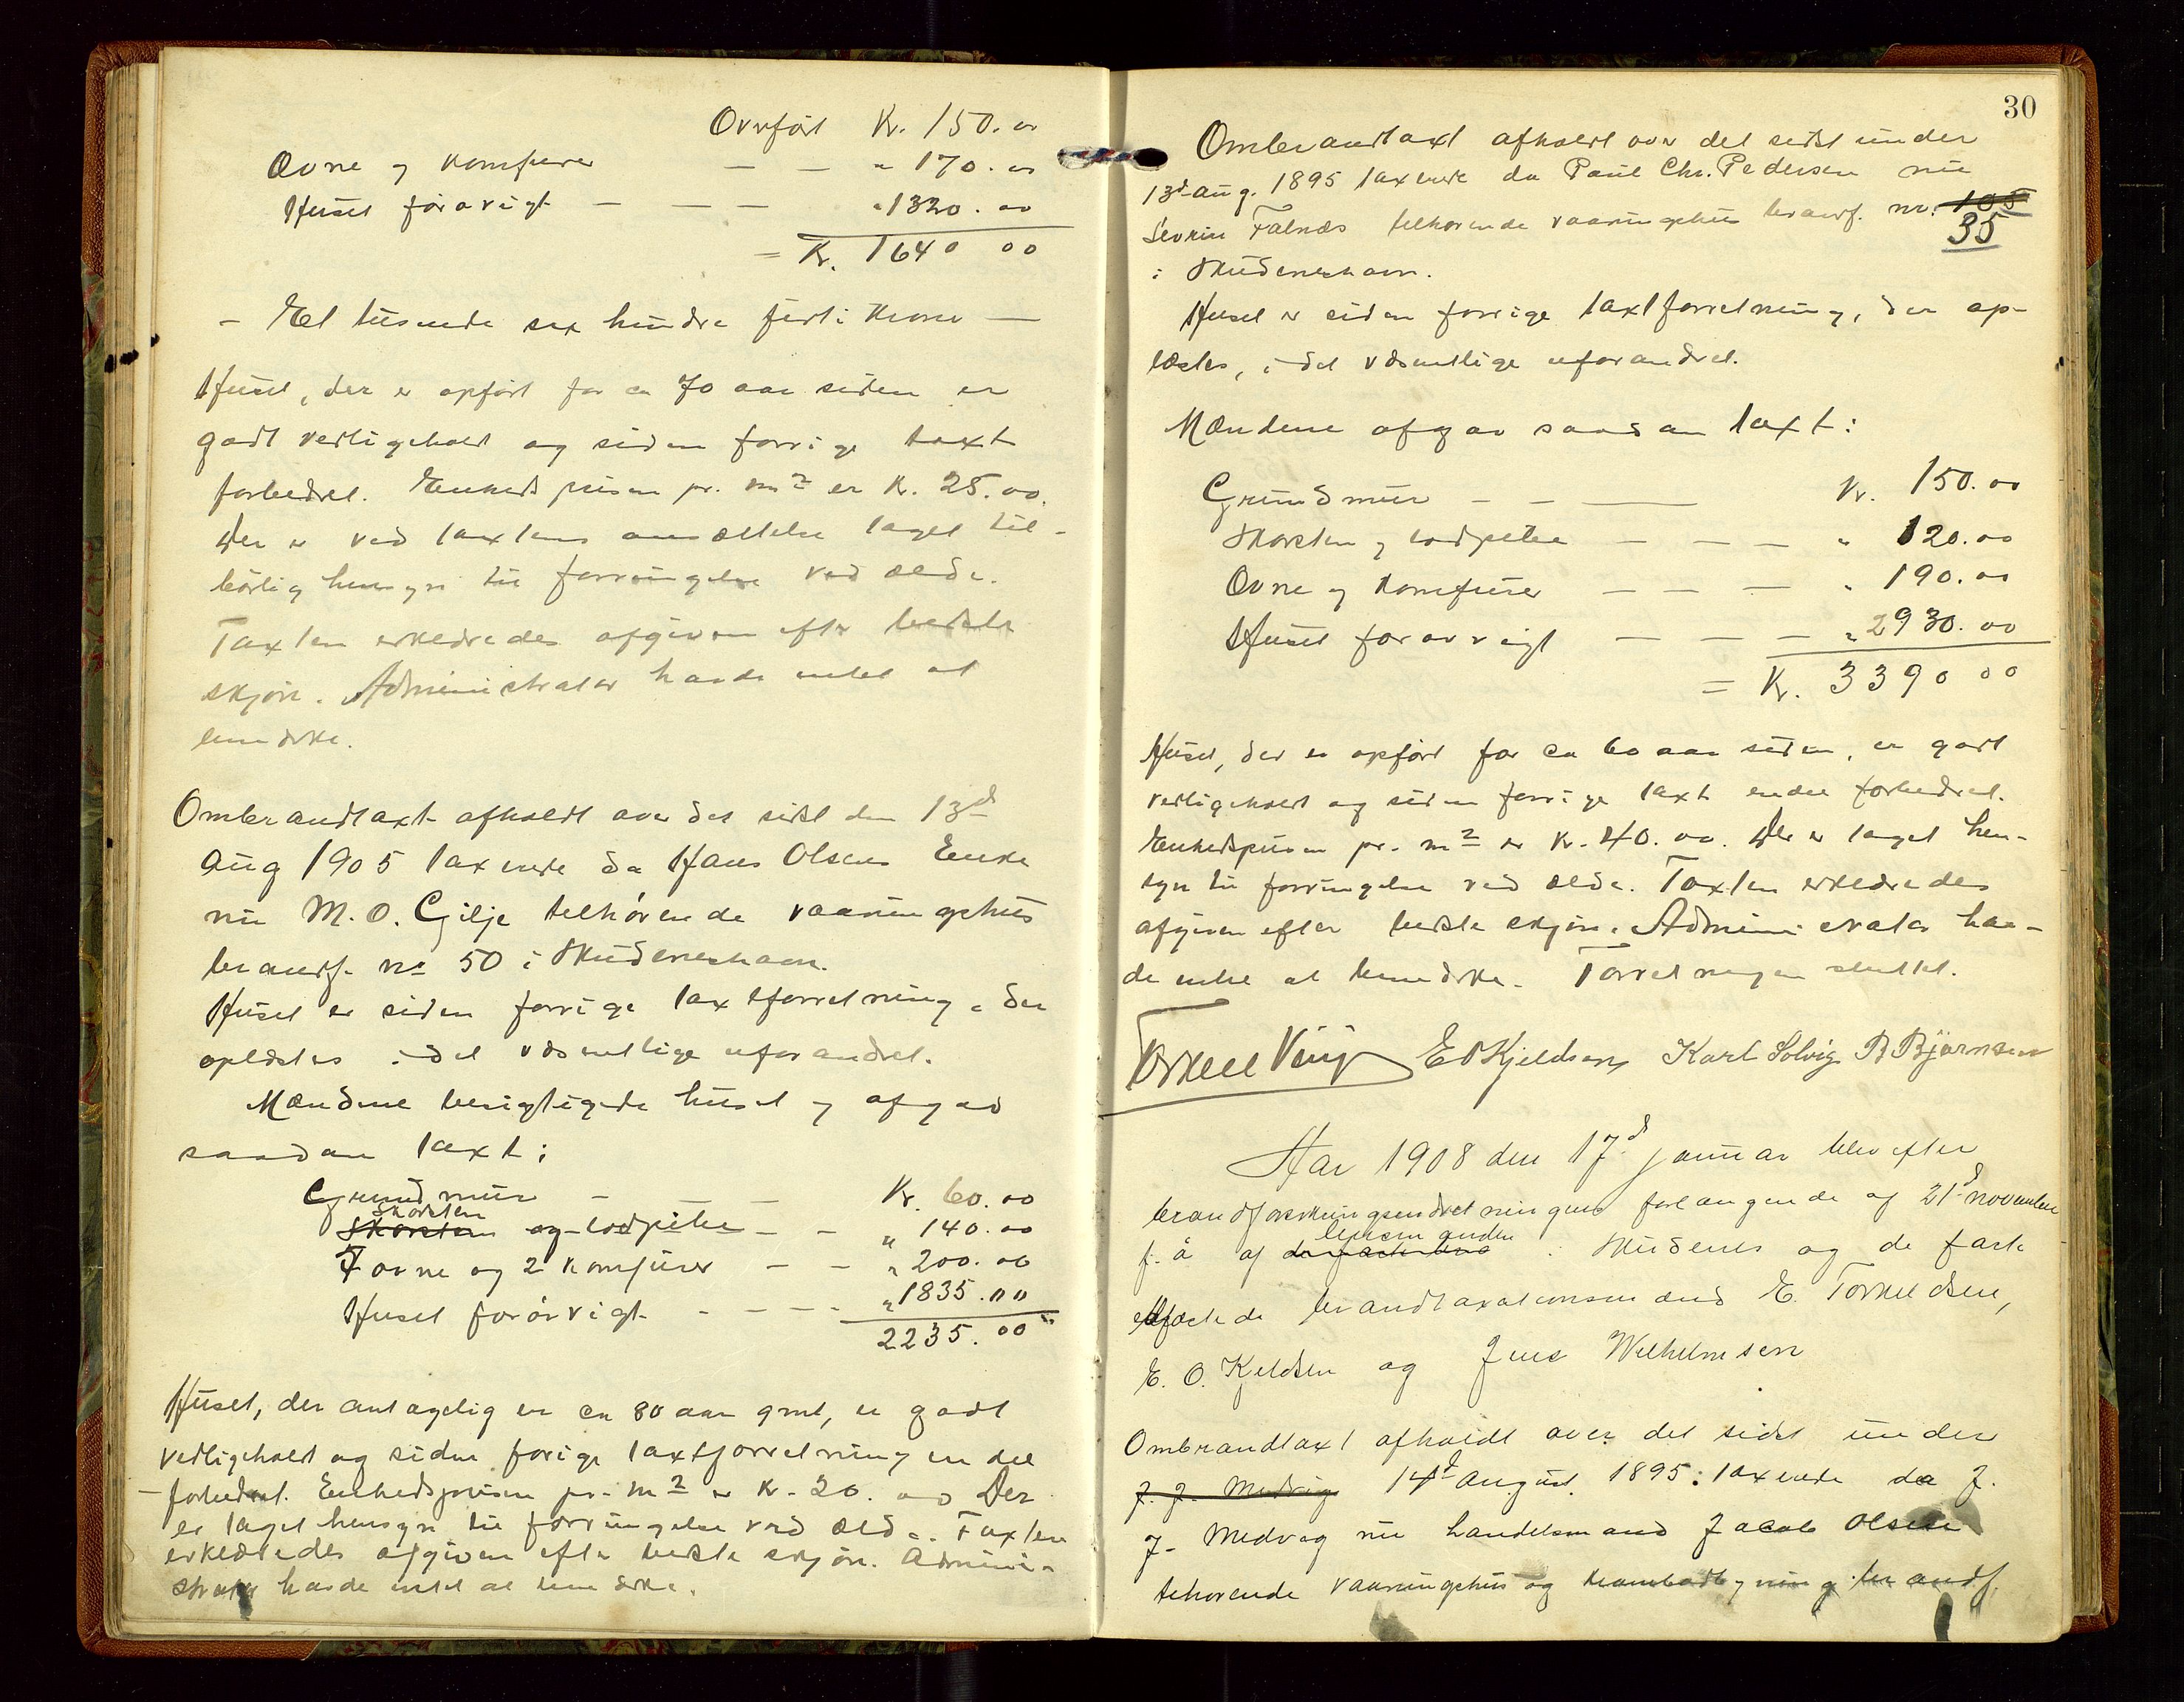 Overført Kr. 150.00
Ovne og komfurer — — " 170.00
Huset forøvrigt — — — " 1320.00
= Kr. 1640 00
- Et tusende sex hundre førti kroner —
Huset, der er opført for ca 70 aar siden er
godt vedligeholdt og siden forrige taxt
forbedret. Enhedsprisen pr. m² er Kr. 25.00.
Der er ved taxtens ansættelse taget til-
børlig hensyn til forringelse ved ælde.
Taxten erklæredes afgiven efter bedste
skjøn. Administrator havde intet at
bemærke.
Ombrandtaxt afholdt over det sidst den 13d
Aug 1905 taxerede da Hans Olsens Enke
nu M. O. Gilje tilhørende vaaningshus
brandf. no 50 i Skudeneshavn.
Huset er siden forrige taxtforretning, der
oplæstes i det væsentlige uforandret.
Mændene besigtigede huset og afgav
saadan taxt:
Grundmur — — Kr. 60.00
Skorsten
Skorsten og lodpibe — — " 140.00
7 ovne og 2 komfurer — — " 200.00
Huset forøvrigt - - — - " 1835.00
2235.00
Huset, der antagelig er ca 80 aar gml, er godt
vedligeholdt og siden forige taxtforretning en del
forbedret. Enhedsprisen pr. m² er Kr. 20.00 Der
er taget hensyn til forringelse ved ælde. Taxten
erklæredes afgiven efter bedste skjøn. Admini-
strator havde intet at bemærke.
30
Ombrandtaxt afholdt over det sidst under
13d aug. 1895 taxerede da Paul Chr. Pedersen nu
Sevrin Falnæs tilhørende vaaningshus brandf. nr. 105
35
i Skudeneshavn.
Huset er siden forrige taxtforretning, der op-
læstes, i det væsentlige uforandret.
Mændene afgav saadan taxt:
Grundmur — — — Kr. 150.00
Skorsten og lodpibe — — — " 120.00
Ovne og komfurer — — — " 190.00
Huset forøvrigt — — — " 2930.00
= Kr. 3390 00
Huset, der er opført for ca 60 aar siden, er godt
vedligeholdt og siden forrige taxt endel forbedret.
Enhedsprisen pr. m² er Kr. 40.00. Der er taget hen-
syn til forringelse ved ælde. Taxten erklæredes
afgiven efter bedste skjøn. Administrator hav-
de intet at bemærke. Forretningen sluttet.
E O Kjeldsen Karl Solvig B Bjørnsen
Aar 1908 den 17d januar blev efter
brandforsikringsindretningens forlangende af 21d november
f. å af i Skudenes og de fast
lensmanden
edfæstede brandtaxationsmænd E. Torkeldsen,
E. O. Kjeldsen og Jens Wilhelmsen
Ombrandtaxt afholdt over det sidst under
J. J. Medvig 14d august 1895: taxerede da J.
J. Medvog nu handelsmand Jacob Olsen
tilhørende vaaningshus og krambodbygning brandf.